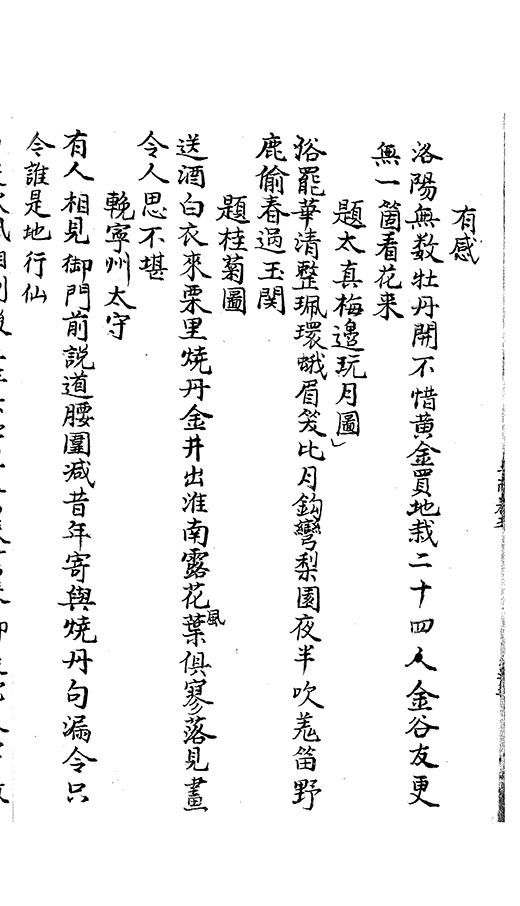 有感
洛陽無数牡丹開不惜黄金買地栽二十四人金谷友更
無一箇看花来
題太真梅邊玩月圖
浴罷華清整珮環蛾眉笑比月鈎彎梨園夜半吹羗笛野
鹿偷春過玉関
題桂菊圖
送酒白衣來栗里燒丹金井出淮南露花葉俱寥落見畫
風
令人思不堪
輓寧州太守
有人相見御門前説道腰圍减昔年寄與燒丹句漏令只
令誰是地行仙